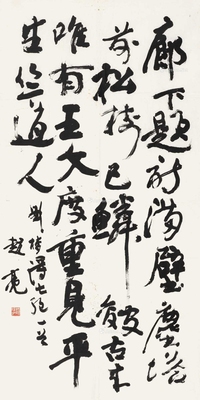 廊下題詩滿壁塵塔
前松樹已鱗皴古來
唯有王文度重見平
生竺道人
劉禹錫七絕一首
趙